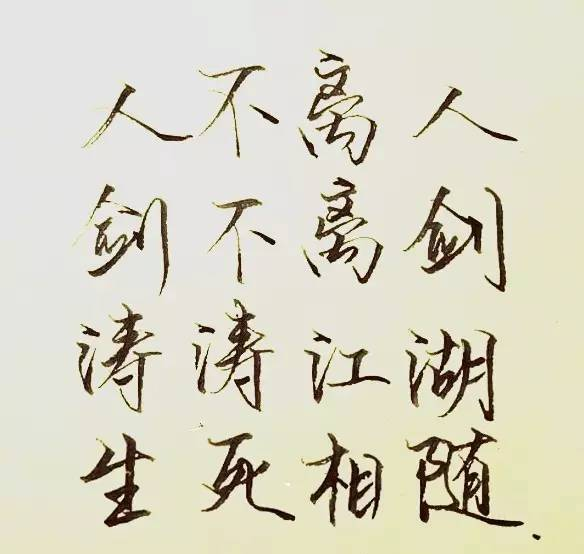 人不离人
剑不离剑
涛涛江湖
生死相随.